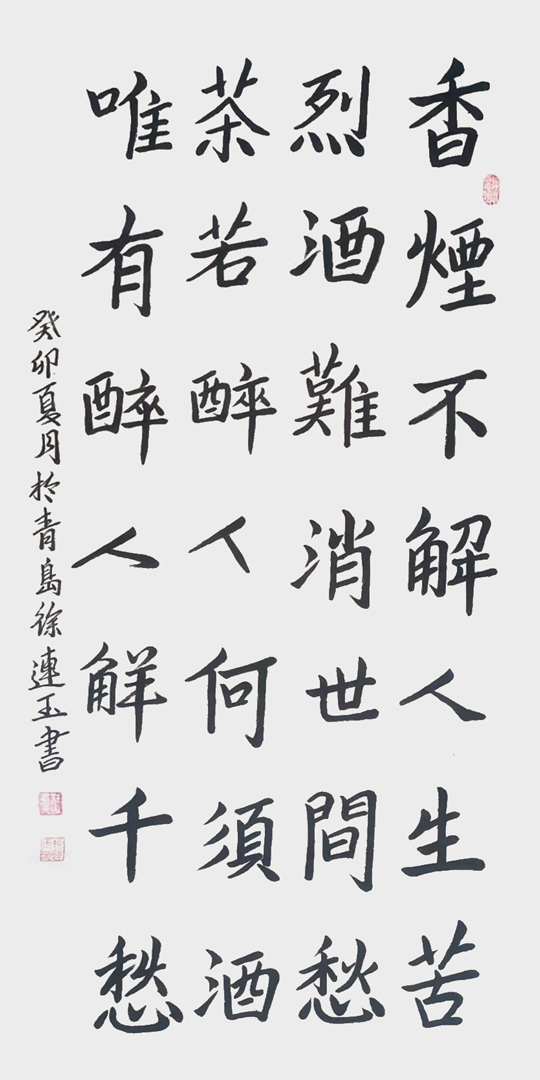 香煙不解人生苦
烈酒難消世間愁
茶若醉人何須酒
唯有醉人觧千愁
癸卯夏月於青島徐連玉書